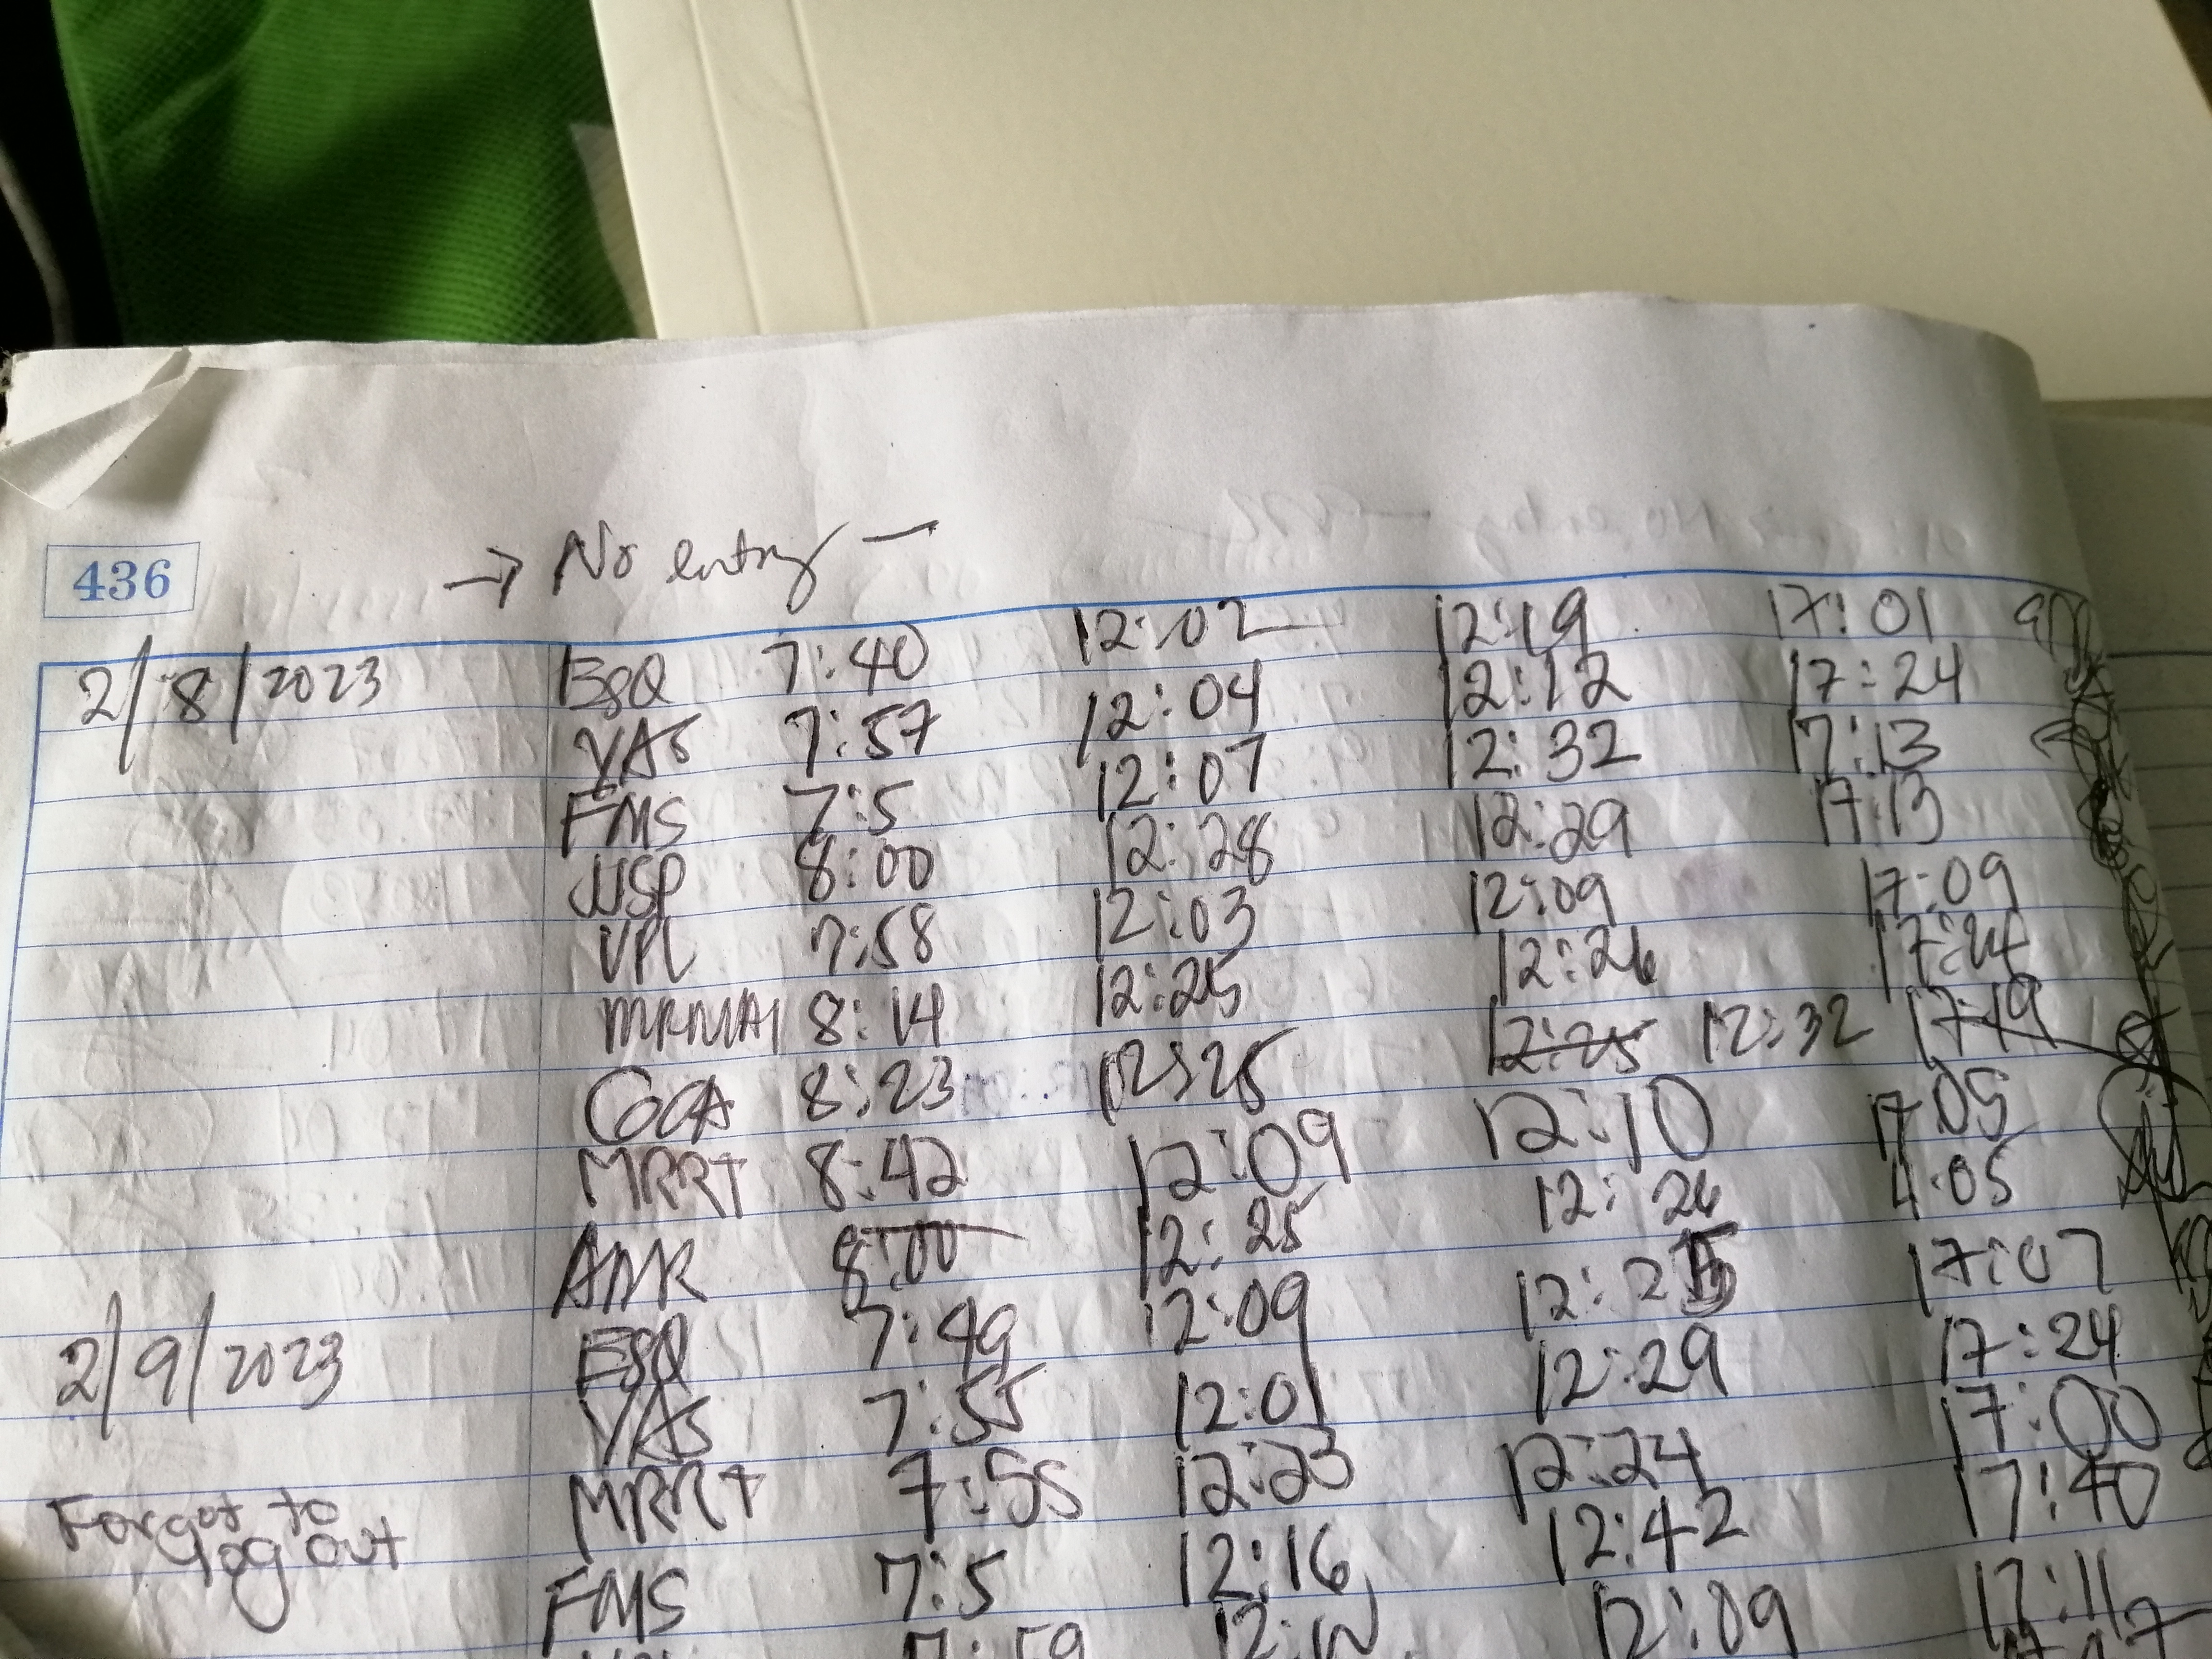 → No entry —
436
2/8/2023 ESQ 7:40 12:02 12:19 17:01
YAS 7:57 12:04 12:12 17:24
FMS 7:5 12:07 12:32 17:13
JJSP 8:00 12:28 12:29 17:13
VPL 7:58 12:03 12:09 17:09
8:14 12:25 12:26 17:24
GCA 8:23 12:25 12:25 12:32 17:19
MRRT 8:42 12:09 12:10 17:05
AMR 8:00 12:25 12:26 4:05
2/9/2023 ESQ 7:49 12:09 12:25 17:07
YAS 7:55 12:01 12:29 17:24
MRRT 7:55 12:23 12:24 17:00
Forgot to log out FMS 7:5 12:16 12:42 17:40
7:59 12:10 12:09 17:11